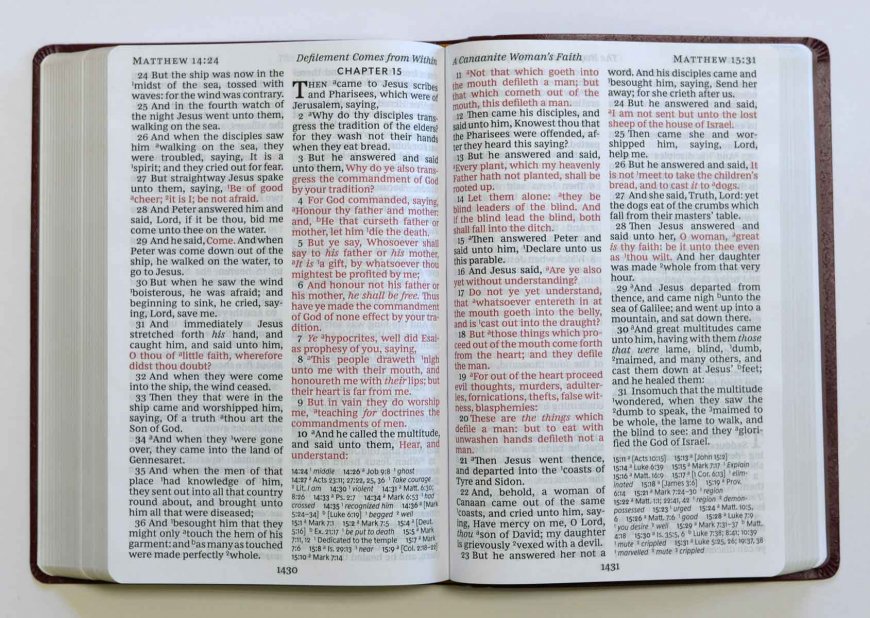 MATTHEW 14:24
24 But the ship was now in the
¹midst of the sea, tossed with
waves: for the wind was contrary.
25 And in the fourth watch of
the night Jesus went unto them,
walking on the sea.
26 And when the disciples saw
him ᵃwalking on the sea, they
were troubled, saying, It is a
¹spirit; and they cried out for fear.
27 But straightway Jesus spake
unto them, saying, ¹Be of good
ᵃcheer; ²it is I; be not afraid.
28 And Peter answered him and
said, Lord, if it be thou, bid me
come unto thee on the water.
29 And he said, Come. And when
Peter was come down out of the
ship, he walked on the water, to
go to Jesus.
30 But when he saw the wind
¹boisterous, he was afraid; and
beginning to sink, he cried, say-
ing, Lord, save me.
31 And immediately Jesus
stretched forth his hand, and
caught him, and said unto him,
O thou of ᵃlittle faith, wherefore
didst thou doubt?
32 And when they were come
into the ship, the wind ceased.
33 Then they that were in the
ship came and worshipped him,
saying, Of a truth ᵃthou art the
Son of God.
34 ᵃAnd when they ¹were gone
over, they came into the land of
Gennesaret.
35 And when the men of that
place ¹had knowledge of him,
they sent out into all that country
round about, and brought unto
him all that were diseased;
36 And ¹besought him that they
might only ᵃtouch the hem of his
garment: and ᵇas many as touched
were made perfectly ²whole.
Defilement Comes from Within
CHAPTER 15
THEN ᵃcame to Jesus scribes
and Pharisees, which were of
Jerusalem, saying,
2 ᵃWhy do thy disciples trans-
gress the tradition of the elders?
for they wash not their hands
when they eat bread.
3 But he answered and said
unto them, Why do ye also trans-
gress the commandment of God
by your tradition?
4 For God commanded, saying,
ᵃHonour thy father and mother:
and, ᵇHe that curseth father or
mother, let him ¹die the death.
5 But ye say, Whosoever shall
say to his father or his mother,
ᵃIt is ¹a gift, by whatsoever thou
mightest be profited by me;
6 And honour not his father or
his mother, he shall be free. Thus
have ye made the commandment
of God of none effect by your tra-
dition.
7 Ye ᵃhypocrites, well did Esai-
as prophesy of you, saying,
8 ᵃThis people draweth ¹nigh
unto me with their mouth, and
honoureth me with their lips; but
their heart is far from me.
9 But in vain they do worship
me, ᵃteaching for doctrines the
commandments of men.
10 ᵃAnd he called the multitude,
and said unto them, Hear, and
understand:
14:24 ¹ middle 14:26 ᵃ Job 9:8 ¹ ghost
14:27 ᵃ Acts 23:11; 27:22, 25, 36 ¹ Take courage
² Lit. I am 14:30 ¹ violent 14:31 ᵃ Matt. 6:30;
8:26 14:33 ᵃ Ps. 2:7 14:34 ᵃ Mark 6:53 ¹ had
crossed 14:35 ¹ recognized him 14:36 ᵃ [Mark
5:24–34] ᵇ [Luke 6:19] ¹ begged ² well
15:1 ᵃ Mark 7:1 15:2 ᵃ Mark 7:5 15:4 ᵃ [Deut.
5:16] ᵇ Ex. 21:17 ¹ be put to death 15:5 ᵃ Mark
7:11, 12 ¹ Dedicated to the temple 15:7 ᵃ Mark
7:6 15:8 ᵃ Is. 29:13 ¹ near 15:9 ᵃ [Col. 2:18–22]
15:10 ᵃ Mark 7:14
1430
A Canaanite Woman's Faith
MATTHEW 15:31
11 ᵃNot that which goeth into
the mouth defileth a man; but
that which cometh out of the
mouth, this defileth a man.
12 Then came his disciples, and
said unto him, Knowest thou that
the Pharisees were offended, af-
ter they heard this saying?
13 But he answered and said,
ᵃEvery plant, which my heavenly
Father hath not planted, shall be
rooted up.
14 Let them alone: ᵃthey be
blind leaders of the blind. And
if the blind lead the blind, both
shall fall into the ditch.
15 ᵃThen answered Peter and
said unto him, ¹Declare unto us
this parable.
16 And Jesus said, ᵃAre ye also
yet without understanding?
17 Do not ye yet understand,
that ᵃwhatsoever entereth in at
the mouth goeth into the belly,
and is ¹cast out into the draught?
18 But ᵃthose things which pro-
ceed out of the mouth come forth
from the heart; and they defile
the man.
19 ᵃFor out of the heart proceed
evil thoughts, murders, adulter-
ies, fornications, thefts, false wit-
ness, blasphemies:
20 These are the things which
defile a man: but to eat with
unwashen hands defileth not a
man.
21 ᵃThen Jesus went thence,
and departed into the ¹coasts of
Tyre and Sidon.
22 And, behold, a woman of
Canaan came out of the same
¹coasts, and cried unto him, say-
ing, Have mercy on me, O Lord,
thou ᵃson of David; my daughter
is grievously ²vexed with a devil.
23 But he answered her not a
word. And his disciples came and
¹besought him, saying, Send her
away; for she crieth after us.
24 But he answered and said,
ᵃI am not sent but unto the lost
sheep of the house of Israel.
25 Then came she and wor-
shipped him, saying, Lord,
help me.
26 But he answered and said, It
is not ¹meet to take the children's
bread, and to cast it to ᵃdogs.
27 And she said, Truth, Lord: yet
the dogs eat of the crumbs which
fall from their masters' table.
28 Then Jesus answered and
said unto her, O woman, ᵃgreat
is thy faith: be it unto thee even
as ¹thou wilt. And her daughter
was made ²whole from that very
hour.
29 ᵃAnd Jesus departed from
thence, and came nigh ᵇunto the
sea of Galilee; and went up into a
mountain, and sat down there.
30 ᵃAnd great multitudes came
unto him, having with them those
that were lame, blind, ¹dumb,
²maimed, and many others, and
cast them down at Jesus' ᵇfeet;
and he healed them:
31 Insomuch that the multitude
¹wondered, when they saw the
²dumb to speak, the ³maimed to
be whole, the lame to walk, and
the blind to see: and they ᵃglori-
fied the God of Israel.
15:11 ᵃ [Acts 10:15] 15:13 ᵃ [John 15:2]
15:14 ᵃ Luke 6:39 15:15 ᵃ Mark 7:17 ¹ Explain
15:16 ᵃ Matt. 16:9 15:17 ᵃ [1 Cor. 6:13] ¹ elim-
inated 15:18 ᵃ [James 3:6] 15:19 ᵃ Prov.
6:14 15:21 ᵃ Mark 7:24–30 ¹ region
15:22 ᵃ Matt. 1:1; 22:41, 42 ¹ region ² demon-
possessed 15:23 ¹ urged 15:24 ᵃ Matt. 10:5,
6 15:26 ᵃ Matt. 7:6 ¹ good 15:28 ᵃ Luke 7:9
¹ you desire ² well 15:29 ᵃ Mark 7:31–37 ᵇ Matt.
4:18 15:30 ᵃ Is. 35:5, 6 ᵇ Luke 7:38; 8:41; 10:39
¹ mute ² crippled 15:31 ᵃ Luke 5:25, 26; 19:37, 38
¹ marvelled ² mute ³ crippled
1431